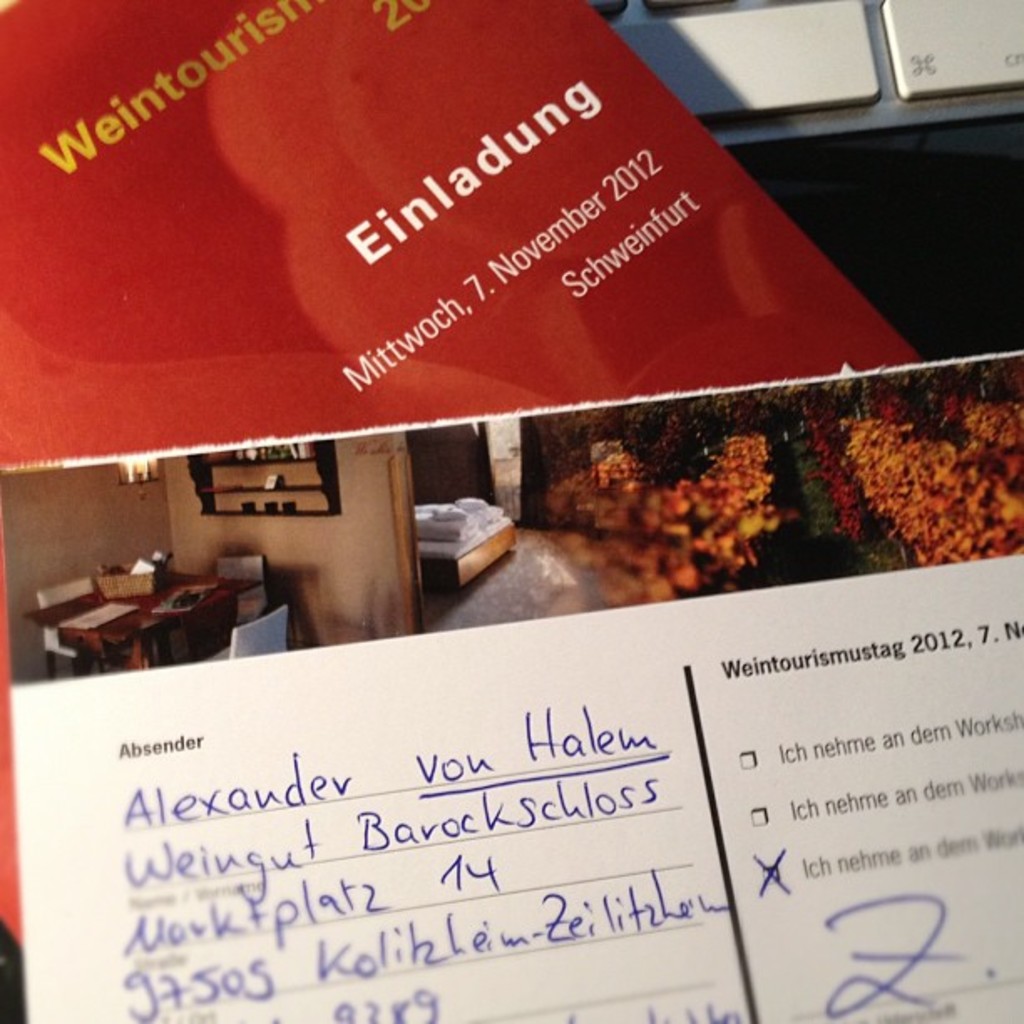 Weintourism
20
Einladung
Mittwoch, 7. November 2012
Schweinfurt
⌘
Absender
Alexander von Halem
Weingut Barockschloss
Marktplatz 14
97505 Kolitzheim-Zeilitzheim
9389
Name / Vorname
Straße
Weintourismustag 2012, 7. No
Ich nehme an dem Worksh
Ich nehme an dem Works
Ich nehme an dem Work
2.
Unterschrift